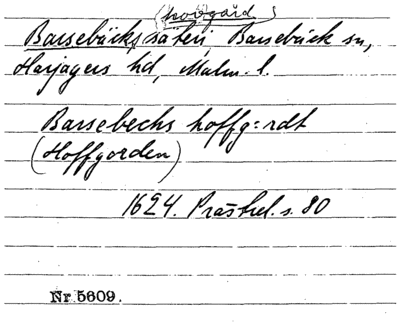 (hovgård)
Barsebäcks säteri, Barsebäck sn,
Harjagers hd, Malm. l.
Barsebechs hoffg:rdt
(Hoffgorden)
1624. Präsrel. s. 80
Nr 5609.